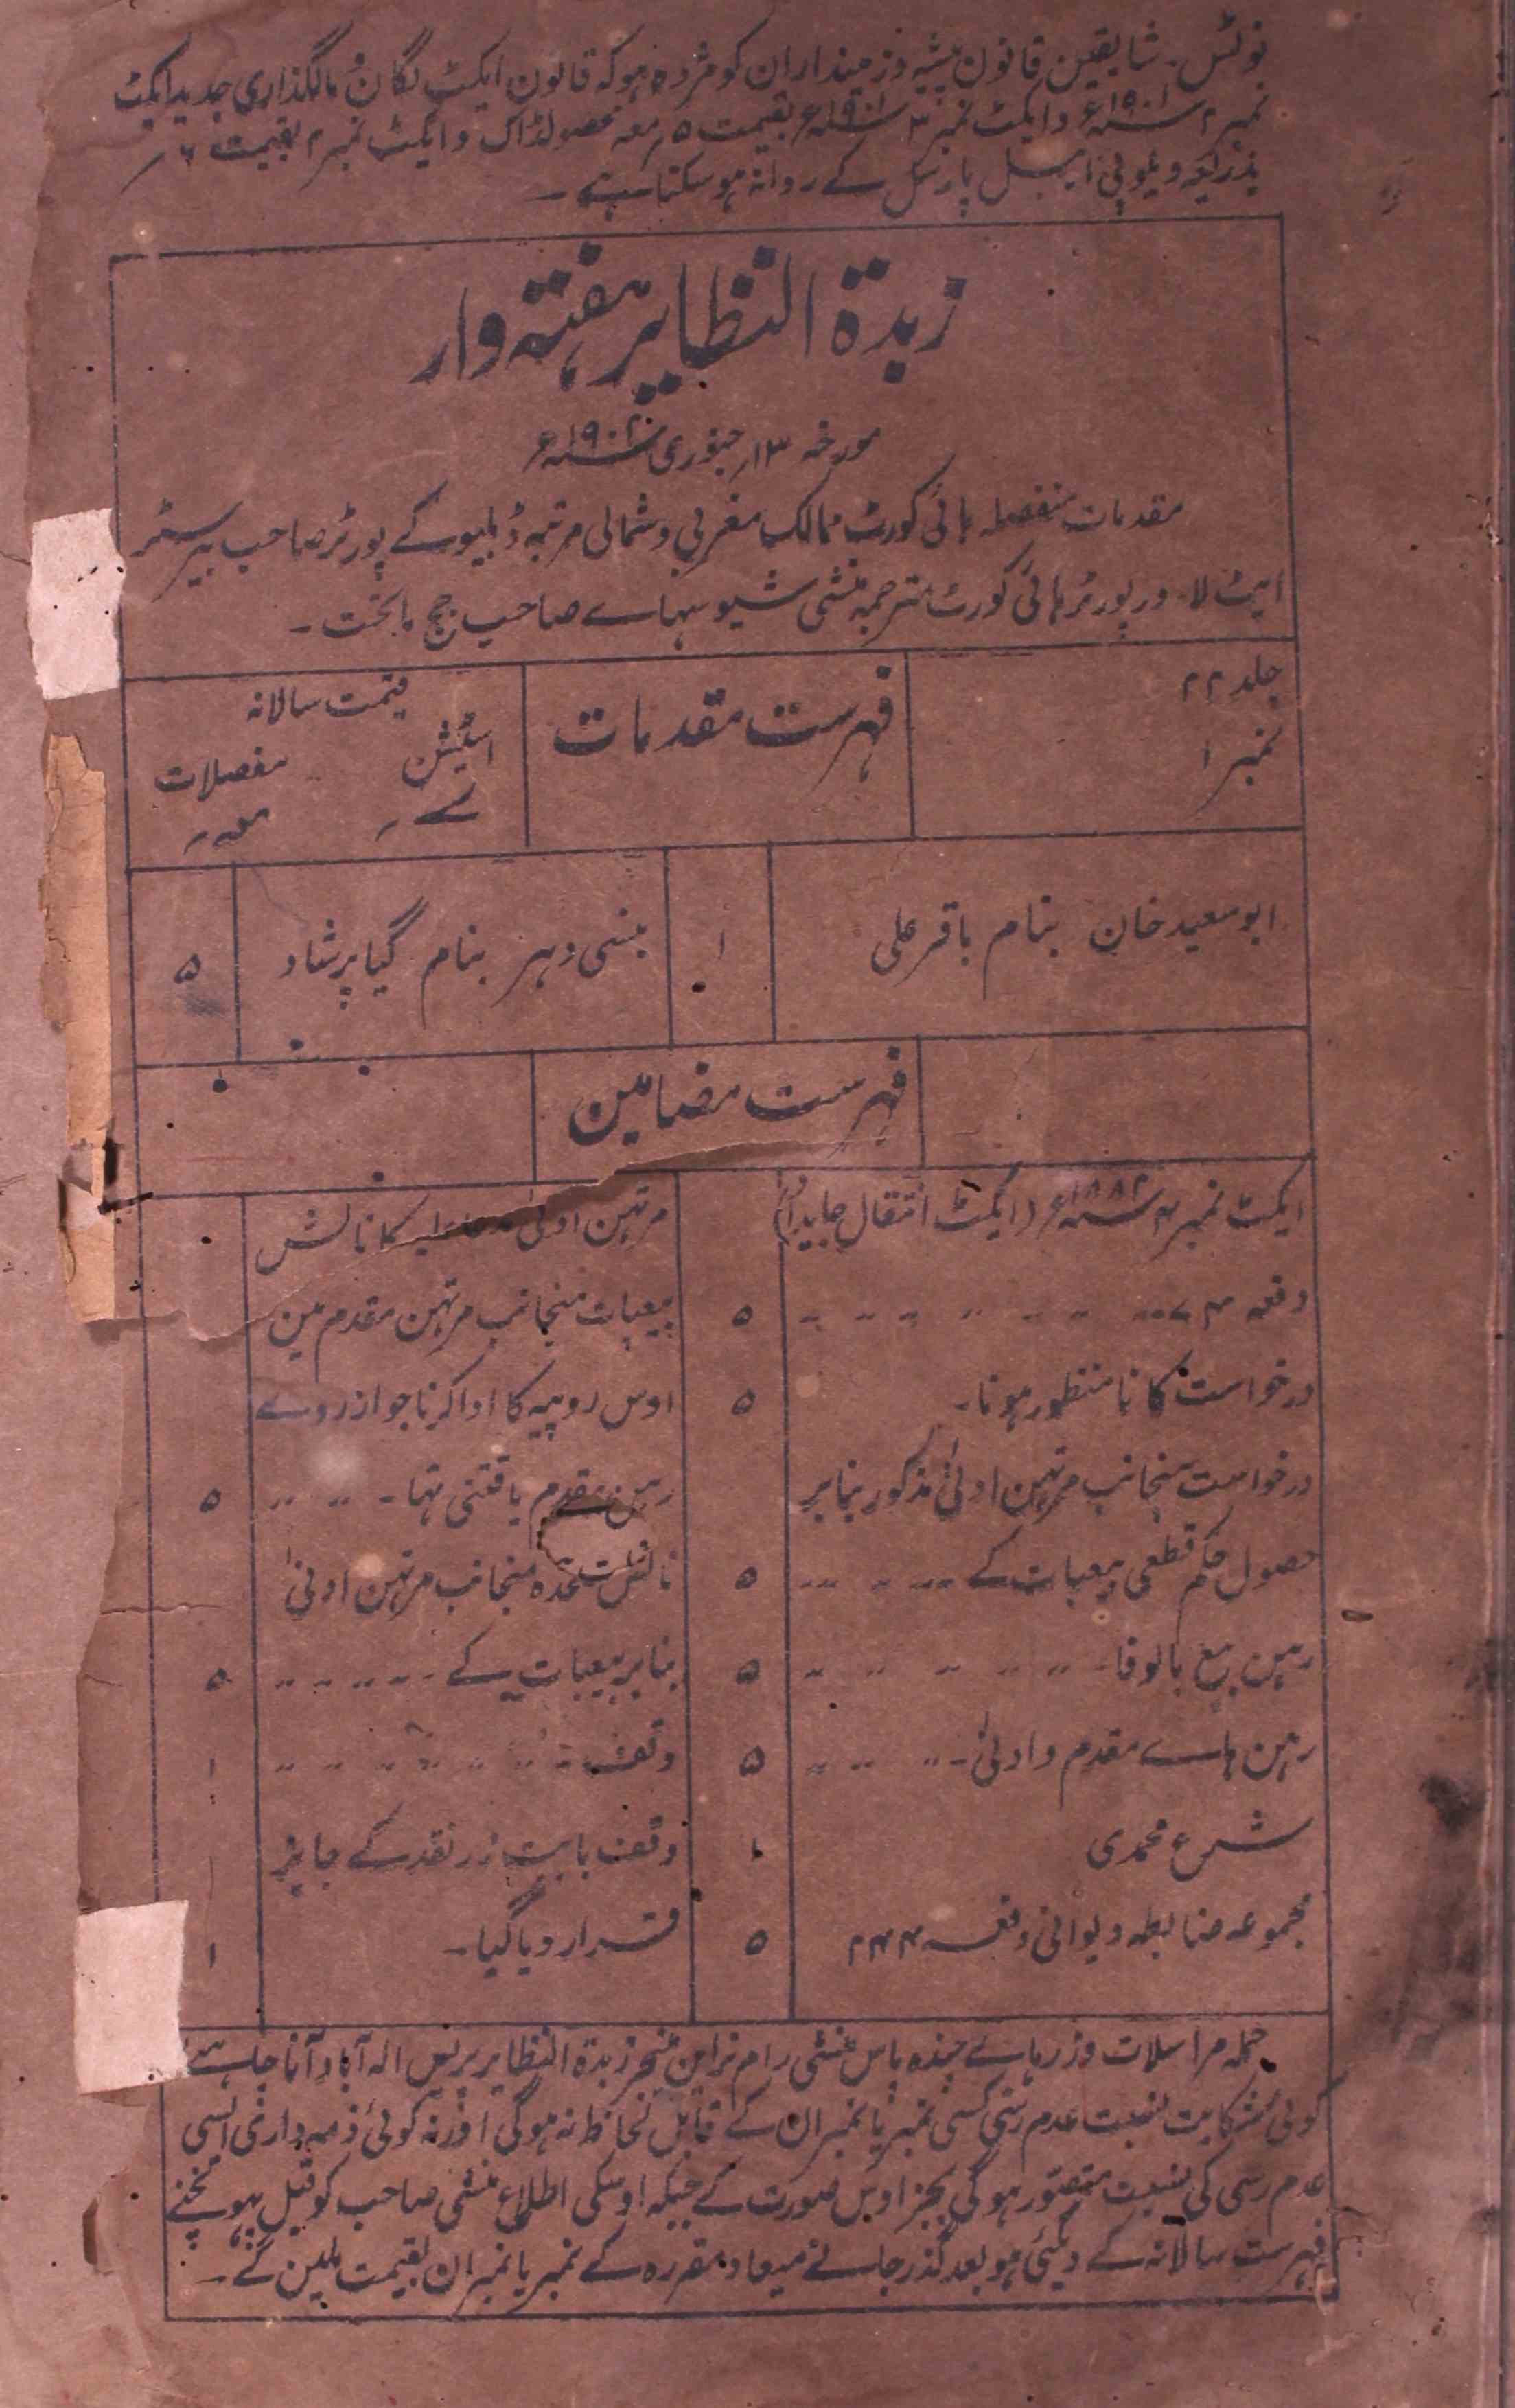 نوٹس۔ شایقین قانون پیشہ و زمینداران کو مژدہ ہو کہ قانون ایکٹ لگان و مالگذاری جدید ایکٹ
نمبر ۲ سنہ ۱۹۰۱ء و ایکٹ نمبر ۳ سنہ ۱۹۰۱ء بقیمت ۵ر معہ محصولڈاک و ایکٹ نمبر ۲ بقیمت ۶ر
بذریعہ ویلوپی ایبل پارسل کے روانہ ہو سکتا ہے۔
زبدۃ النظایر ہفتہ وار
مورخہ ۱۳ر جنوری سنہ ۱۹۰۲ء
مقدمات منفصلہ ہائی کورٹ ممالک مغربی و شمالی مرتبہ ڈبلیو کے پورٹر صاحب بیرسٹر
ایٹ لا۔ و رپورٹر ہائی کورٹ مترجمہ منشی شیو سہاے صاحب جج ماتحت۔
جلد ۲۲
نمبر ۱
فہرست مقدمات
قیمت سالانہ
اسٹیشن مفصلات
ابو سعید خان بنام باقر علی ۱
بنسی دہر بنام گیا پرشاد ۵
فہرست مضامین
ایکٹ نمبر ۴ سنہ ۱۸۸۲ء (ایکٹ انتقال جایداد)
دفعہ ۷۴ ۵
درخواست کا نا منظور ہونا۔ ۵
درخواست منجانب مرتہن ادنیٰ مذکور بنابر
حصول حکم قطعی بیعبات کے ۵
رہن بیع بالوفا۔ ۵
رہن ہاے مقدم و ادنیٰ۔ ۵
شرع محمدی ۱
مجموعہ ضابطہ دیوانی دفعہ ۲۴۴ ۵
مرتہن ادنیٰ مدعا علیہ کا نالش
بیعبات منجانب مرتہن مقدم مین
اوس روپیہ کا ادا کرنا جو از روے
رہن مقدم یافتنی تہا۔ ۵
نالش منجانب مرتہن ادنیٰ
بنابر بیعبات کے ۵
وقف ۱
وقف بابت زر نقد کے جایز
قرار دیا گیا۔ ۱
جملہ مراسلات و زرہاے چندہ پاس منشی رام نراین منیجر زبدۃ النظایر پریس الہ آباد آنا چاہئے
کوئی شکایت نسبت عدم رسی کسی نمبر یا نمبران کے قابل لحاظ نہ ہوگی اور نہ کوئی ذمہ داری ایسی
عدم رسی کی نسبت متصور ہوگی بجز اوس صورت کے جبکہ اوسکی اطلاع منشی صاحب کو قبل پہونچنے
فہرست سالانہ کے دیگئی ہو بعد گذر جانے میعاد مقررہ کے نمبر یا نمبران بقیمت ملین گے۔